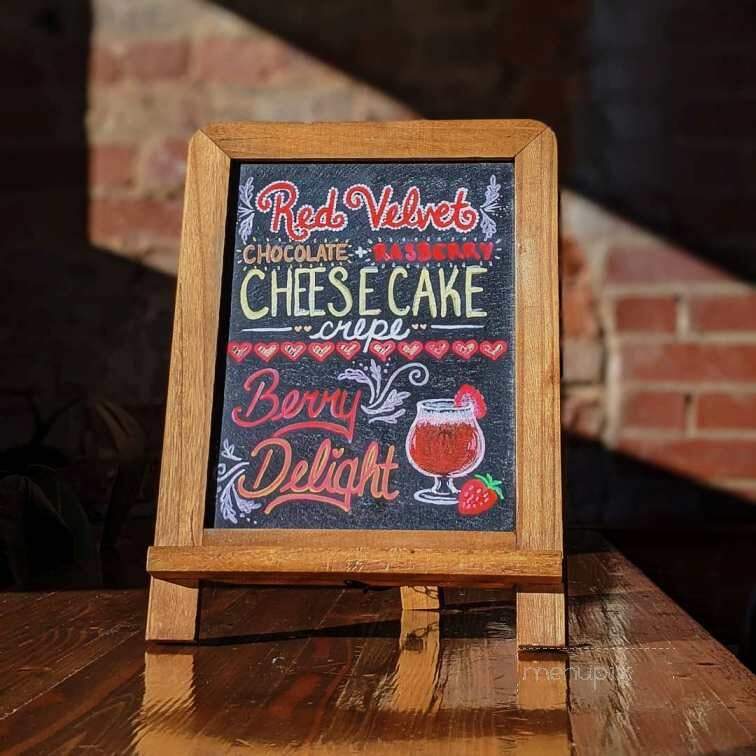 Red Velvet
CHOCOLATE + RASBERRY
CHEESECAKE
crepe
Berry
Delight
menupix